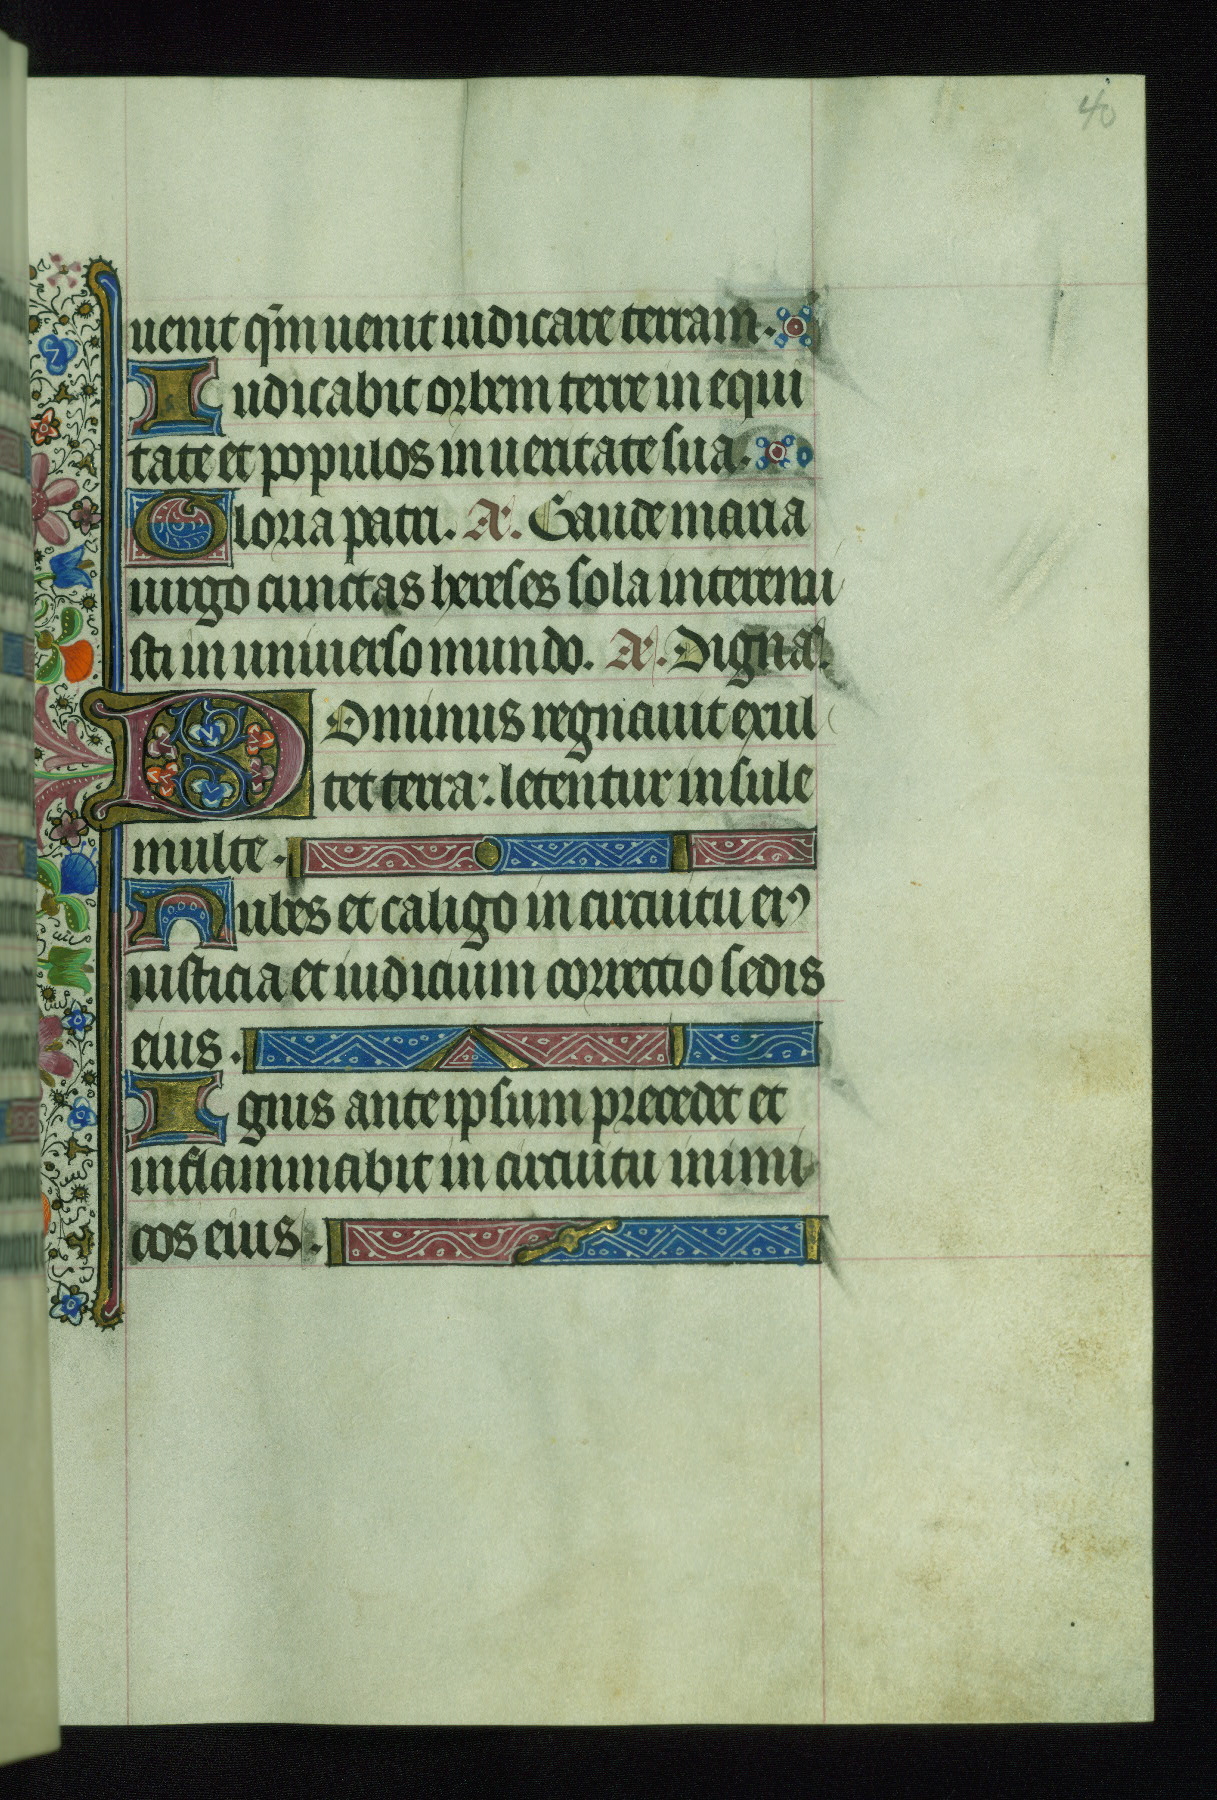 40
uenit qm̄ uenit iudicare terram.
Iudicabit orbem terre in equi
tate et populos in ueritate sua.
Gloria patri. A. Gaude maria
uirgo cunctas hereses sola interemi
sti in uniuerso mundo. A. Digna.
Dominus regnauit exul
tet terra: letentur insule
multe.
Nubes et caligo in circuitu eiꝰ
iusticia et iudicium correctio sedis
eius.
Ignis ante ipsum precedet et
inflammabit in circuitu inimi
cos eius.